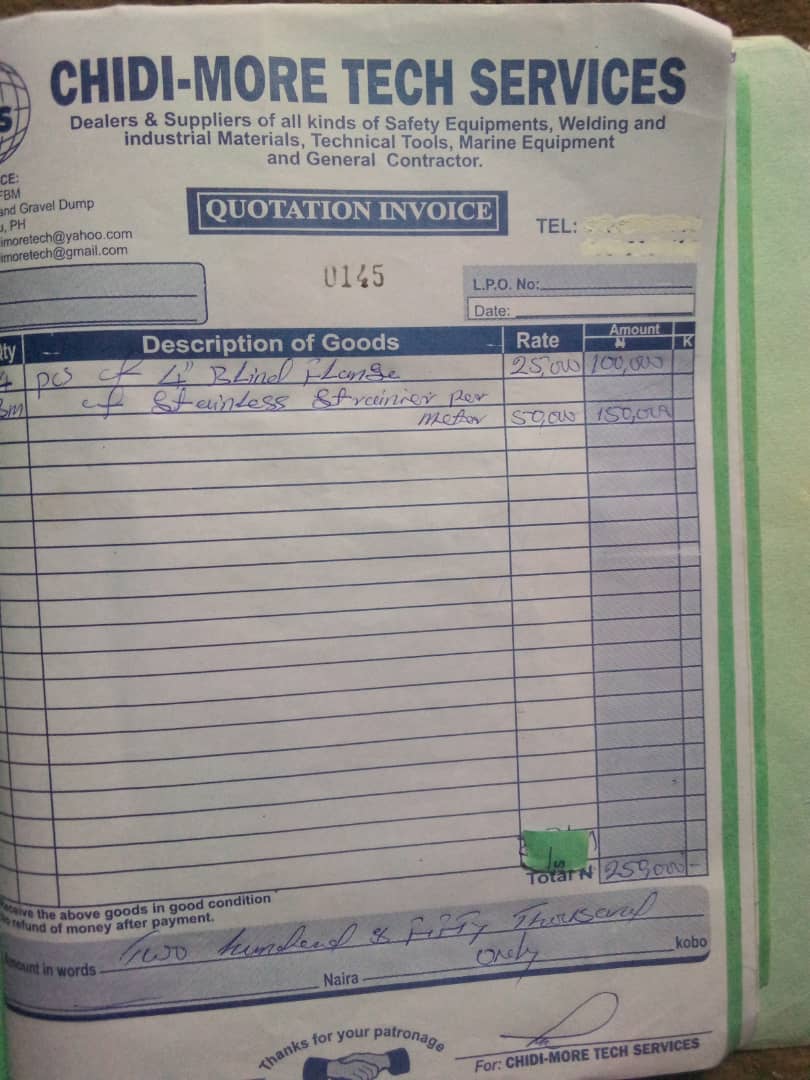 S
CHIDI-MORE TECH SERVICES
Dealers & Suppliers of all kinds of Safety Equipments, Welding and
industrial Materials, Technical Tools, Marine Equipment
and General Contractor.
CE:
FBM
and Gravel Dump
, PH
imoretech@yahoo.com
imoretech@gmail.com
QUOTATION INVOICE
TEL:
0145
L.P.O. No:
Date:
Qty Description of Goods Rate Amount
₦ K
4 pcs of 4" Blind Flange 25,000 100,000
3m of Stainless Strainier Per
Meter 50,000 150,000
Total N 250,000 -
Receive the above goods in good condition
No refund of money after payment.
Amount in words Two hundred & Fifty Thousand
Only
Naira kobo
Thanks for your patronage
For: CHIDI-MORE TECH SERVICES